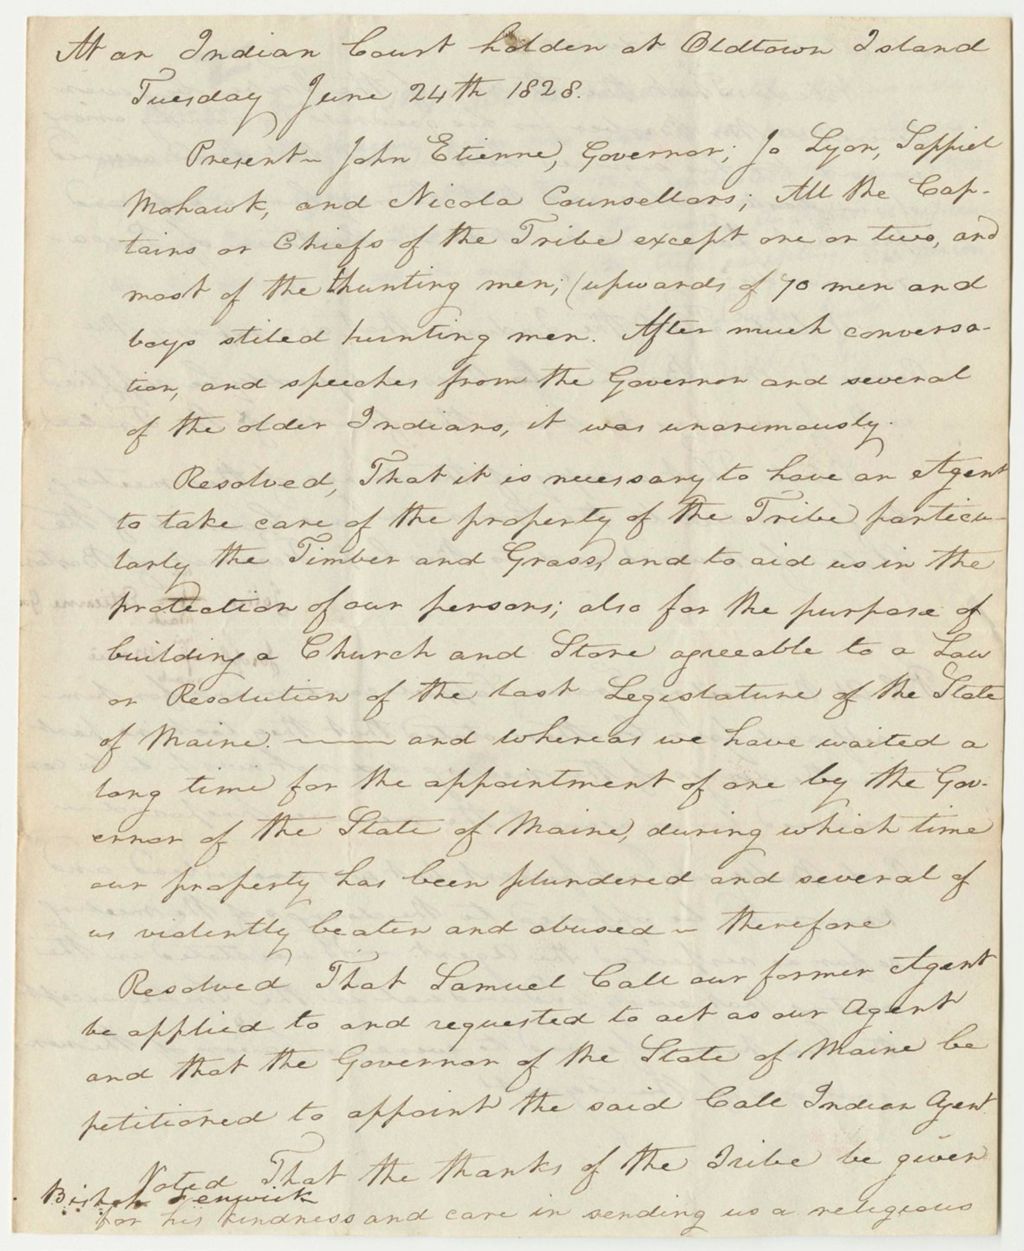 At an Indian Court holden at Oldtown Island
Tuesday June 24th 1828.
Present – John Etienne, Governor; Jo Lyon, Sappiel
Mohawk, and Nicola Counsellors; All the Cap-
tains or Chiefs of the Tribe except one or two, and
most of the hunting men; (upwards of 70 men and
boys stiled hunting men. After much conversa-
tion, and speeches from the Governor and several
of the older Indians, it was unanimously.
Resolved, That it is necessary to have an Agent
to take care of the property of the Tribe particu-
larly the Timber and Grass, and to aid us in the
protection of our persons; also for the purpose of
building a Church and Store agreeable to a Law
or Resolution of the last Legislature of the State
of Maine. —— and whereas we have waited a
long time for the appointment of one by the Gov-
ernor of the State of Maine, during which time
our property has been plundered and several of
us violently beaten and abused – therefore
Resolved That Samuel Call our former Agent
be applied to and requested to act as our Agent
and that the Governor of the State of Maine be
petitioned to appoint the said Call Indian Agent
Voted That the thanks of the Tribe be given
Bishop Fenwick
for his kindness and care in sending us a religious